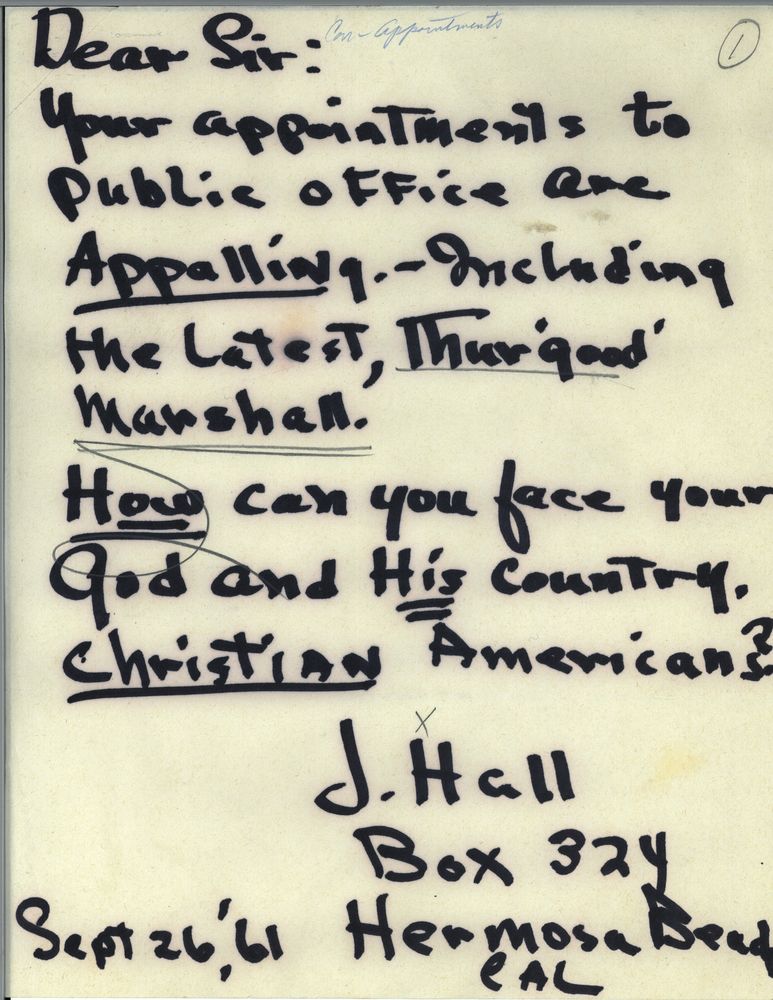 Con-Appointments
1
Dear Sir:
Your appointments to
Public office are
Appalling.-Including
the Latest, Thur'good'
Marshall.
How can you face your
God and His country.
Christian Americans?
X
J. Hall
Box 324
Sept 26,'61 Hermosa Beac
CAL